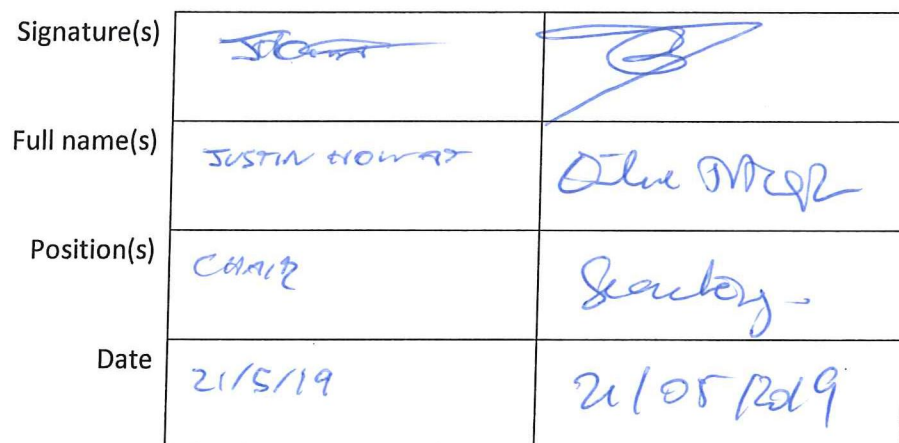 Signature(s)
Full name(s) JUSTIN HOWAT
Position(s) CHAIR Secretary
Date 21/5/19 21/05/2019